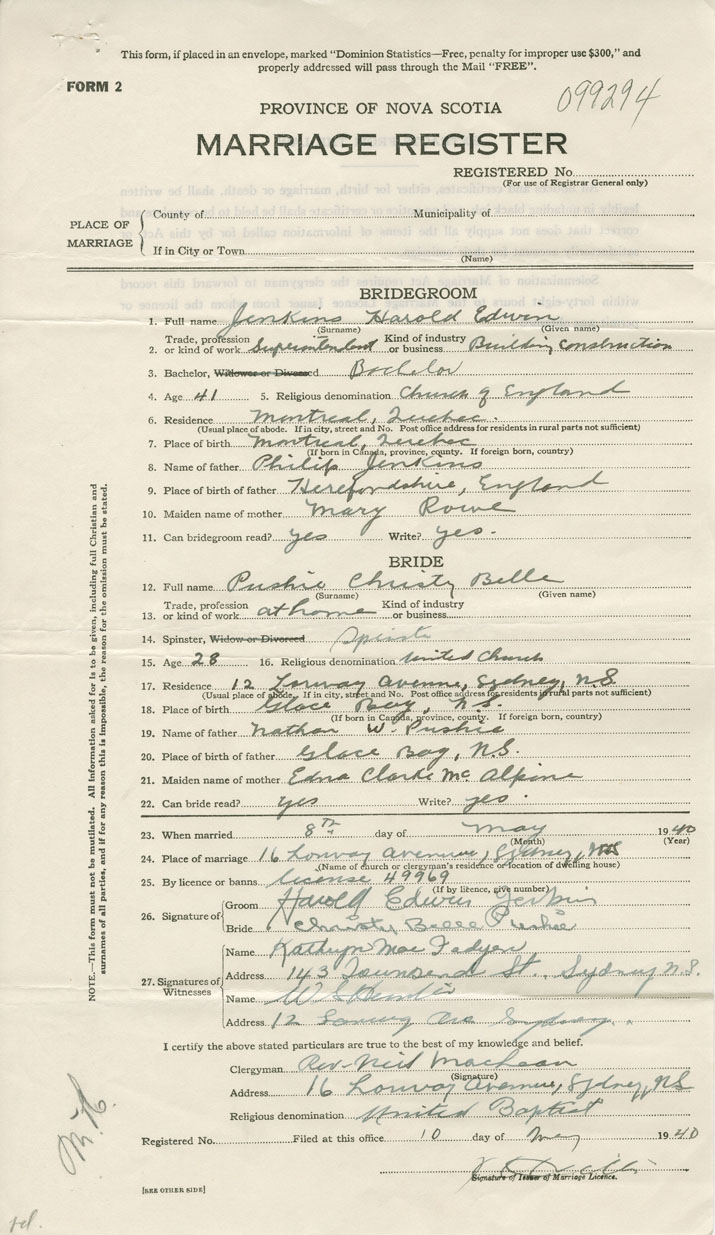 This form, if placed in an envelope, marked "Dominion Statistics—Free, penalty for improper use $300," and
properly addressed will pass through the Mail "FREE".
FORM 2
099294
PROVINCE OF NOVA SCOTIA
MARRIAGE REGISTER
REGISTERED No.
(For use of Registrar General only)
PLACE OF MARRIAGE
County of Municipality of
If in City or Town
(Name)
BRIDEGROOM
1. Full name Jenkins Harold Edwin
(Surname) (Given name)
2. Trade, profession or kind of work Superintendent Kind of industry or business Building Construction
3. Bachelor, Widower or Divorced Bachelor
4. Age 41 5. Religious denomination Church of England
6. Residence Montreal, Quebec.
(Usual place of abode. If in city, street and No. Post office address for residents in rural parts not sufficient)
7. Place of birth Montreal, Quebec
(If born in Canada, province, county. If foreign born, country)
8. Name of father Philip Jenkins
9. Place of birth of father Herefordshire, England
10. Maiden name of mother Mary Rowe
11. Can bridegroom read? yes Write? yes.
BRIDE
12. Full name Pushie Christy Belle
(Surname) (Given name)
13. Trade, profession or kind of work at home Kind of industry or business
14. Spinster, Widow or Divorced
15. Age 28 16. Religious denomination United Church
17. Residence 12 Lorway Avenue, Sydney, N.S.
(Usual place of abode. If in city, street and No. Post office address for residents in rural parts not sufficient)
18. Place of birth Glace Bay, N.S.
(If born in Canada, province, county. If foreign born, country)
19. Name of father Nathan W. Pushie
20. Place of birth of father Glace Bay, N.S.
21. Maiden name of mother Edna Clarke McAlpine
22. Can bride read? yes Write? yes.
23. When married 8th day of May 1940
(Month) (Year)
24. Place of marriage 16 Lorway Avenue, Sydney, NS
(Name of church or clergyman's residence or location of dwelling house)
25. By licence or banns license 49969
(If by licence, give number)
26. Signature of
Groom Harold Edwin Jenkins
Bride Christy Belle Pushie
27. Signatures of Witnesses
Name Kathryn MacFadyen
Address 143 Townsend St. Sydney N.S.
Name
Address 12 Lorway Ave Sydney.
I certify the above stated particulars are true to the best of my knowledge and belief.
Clergyman Rev. Neil MacLean
(Signature)
Address 16 Lorway Avenue, Sydney, NS
Religious denomination United Baptist
Registered No. Filed at this office 10 day of May 1940
Signature of Issuer of Marriage Licence.
[SEE OTHER SIDE]
NOTE.—This form must not be mutilated. All information asked for is to be given, including full Christian and
surnames of all parties, and if for any reason this is impossible, the reason for the omission must be stated.